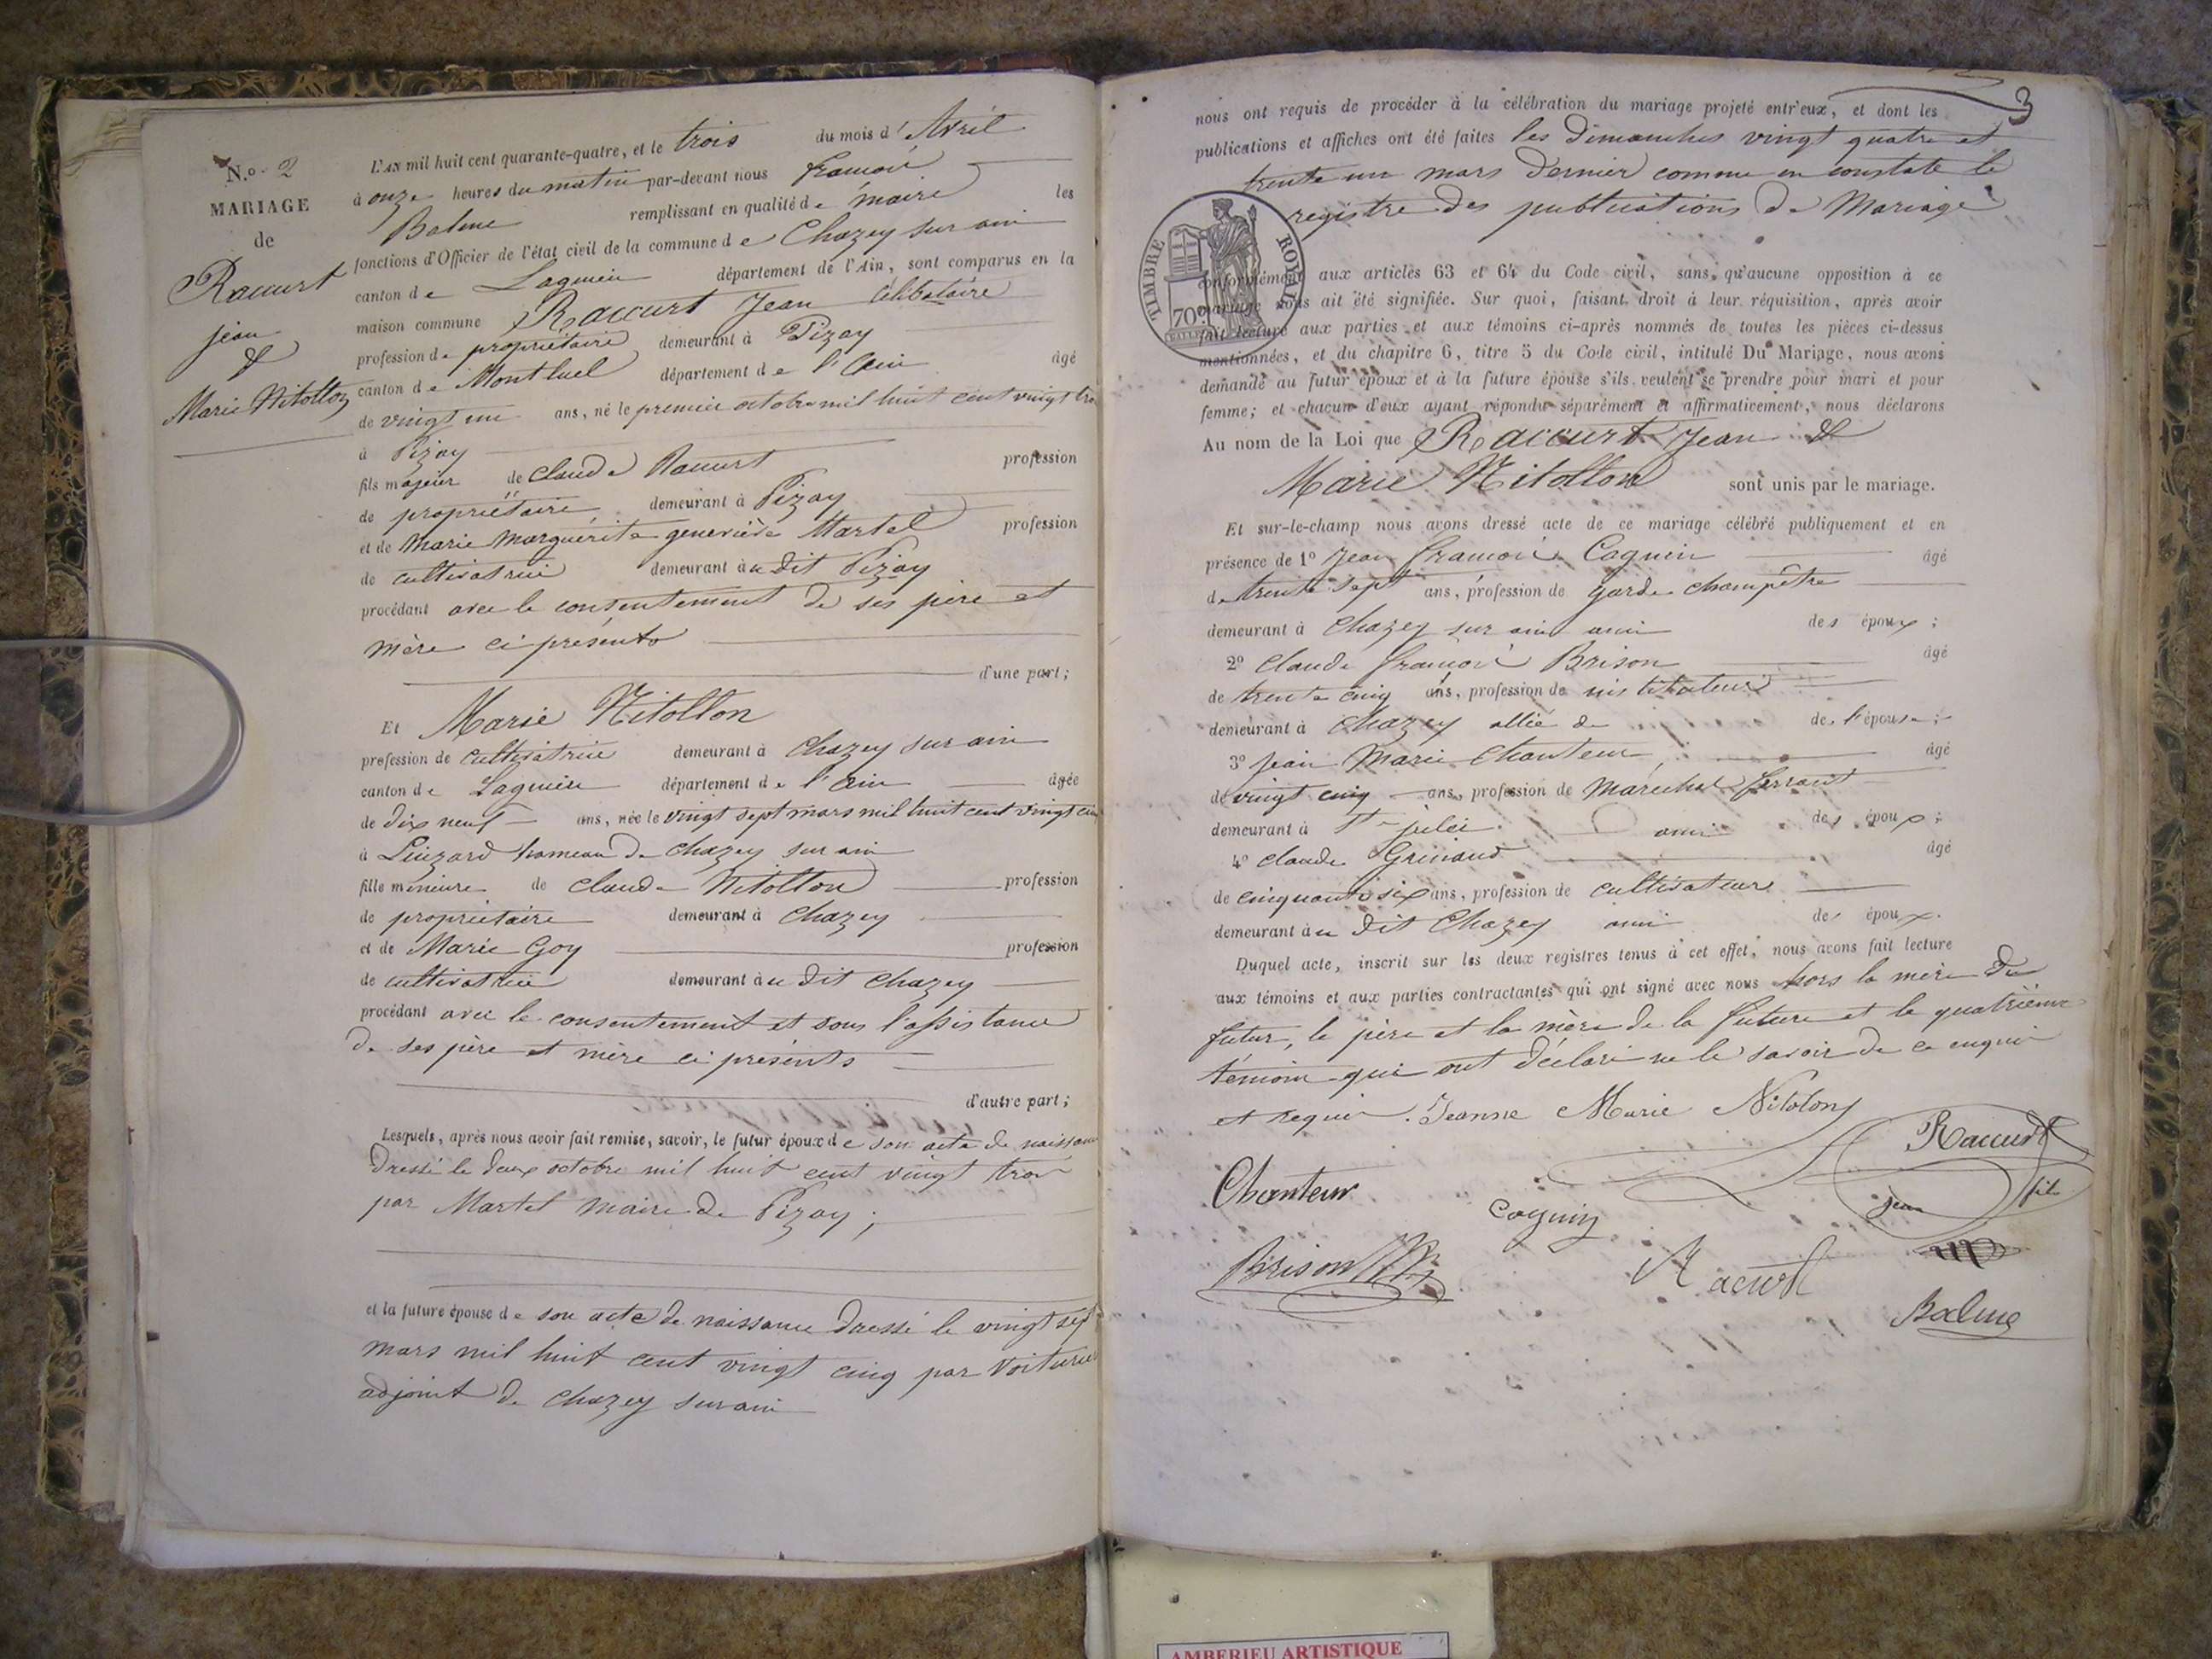 N.o 2
MARIAGE
de
Raccurt
jean
&
Marie Nitollon
L'AN mil huit cent quarante-quatre, et le trois du mois d'Avril
à onze heures du matin par-devant nous françois
Balme remplissant en qualité de maire les
fonctions d'Officier de l'état civil de la commune de Chazey sur ain
canton de Lagnieu département de l'Ain, sont comparus en la
maison commune Raccurt Jean célibataire
profession de propriétaire demeurant à Pizay
canton de Montluel département de l'ain âgé
de vingt un ans, né le premier octobre mil huit cent vingt trois
à Pizay
fils majeur de claude Raccurt profession
de propriétaire demeurant à Pizay
et de Marie Marguerite geneviève Martel profession
de cultivatrice demeurant à u dit Pizay
procédant avec le consentement de ses père et
mère ci présents
d'une part;
Et Marie Nitollon
profession de cultivatrice demeurant à Chazey sur ain
canton de Lagnieu département de l'ain âgée
de dix neuf ans, née le vingt sept mars mil huit cent vingt cinq
à Luizard hameau de chazey sur ain
fille mineure de claude Nitollon profession
de propriétaire demeurant à Chazey
et de Marie Goy profession
de cultivatrice demeurant à u dit chazey
procédant avec le consentement et sous l'assistance
de ses père et mère ci présents
d'autre part;
Lesquels, après nous avoir fait remise, savoir, le futur époux de son acte de naissance
dressé le deux octobre mil huit cent vingt trois
par Martel Maire de Pizay;
et la future épouse de son acte de naissance dressé le vingt sept
mars mil huit cent vingt cinq par Voiturier
adjoint de chazey sur ain
3
nous ont requis de procéder à la célébration du mariage projeté entr'eux, et dont les
publications et affiches ont été faites les dimanches vingt quatre et
trente un mars dernier comme en constate le
registre des publications de Mariage
TIMBRE ROYAL
70
conformément aux articles 63 et 64 du Code civil, sans qu'aucune opposition à ce
mariage nous ait été signifiée. Sur quoi, faisant droit à leur réquisition, après avoir
fait lecture aux parties et aux témoins ci-après nommés de toutes les pièces ci-dessus
mentionnées, et du chapitre 6, titre 5 du Code civil, intitulé Du Mariage, nous avons
demandé au futur époux et à la future épouse s'ils veulent se prendre pour mari et pour
femme; et chacun d'eux ayant répondu séparément et affirmativement, nous déclarons
Au nom de la Loi que Raccurt Jean &
Marie Nitollon sont unis par le mariage.
Et sur-le-champ nous avons dressé acte de ce mariage célébré publiquement et en
présence de 1o Jean françois Cognin âgé
de trente sept ans, profession de garde champêtre
demeurant à Chazey sur ain ami des époux;
2o claude françois Brison âgé
de trente cinq ans, profession de instituteur
demeurant à chazey allié de de l'épouse;
3o jean Marie Chanteur, âgé
de vingt cinq ans, profession de maréchal ferrant
demeurant à Ste julie ami des époux;
4o claude Grinand âgé
de cinquante six ans, profession de cultivateur
demeurant à u dit Chazey ami des époux.
Duquel acte, inscrit sur les deux registres tenus à cet effet, nous avons fait lecture
aux témoins et aux parties contractantes qui ont signé avec nous hors la mère du
futur, le père et la mère de la future et le quatrième
témoin qui ont déclaré ne le savoir de ce enquis
et requis. Jeanne Marie Nitolon
Raccurt
jean fils
Chanteur
Cognin
Brison
Racurt
Balme
AMBERIEU ARTISTIQUE